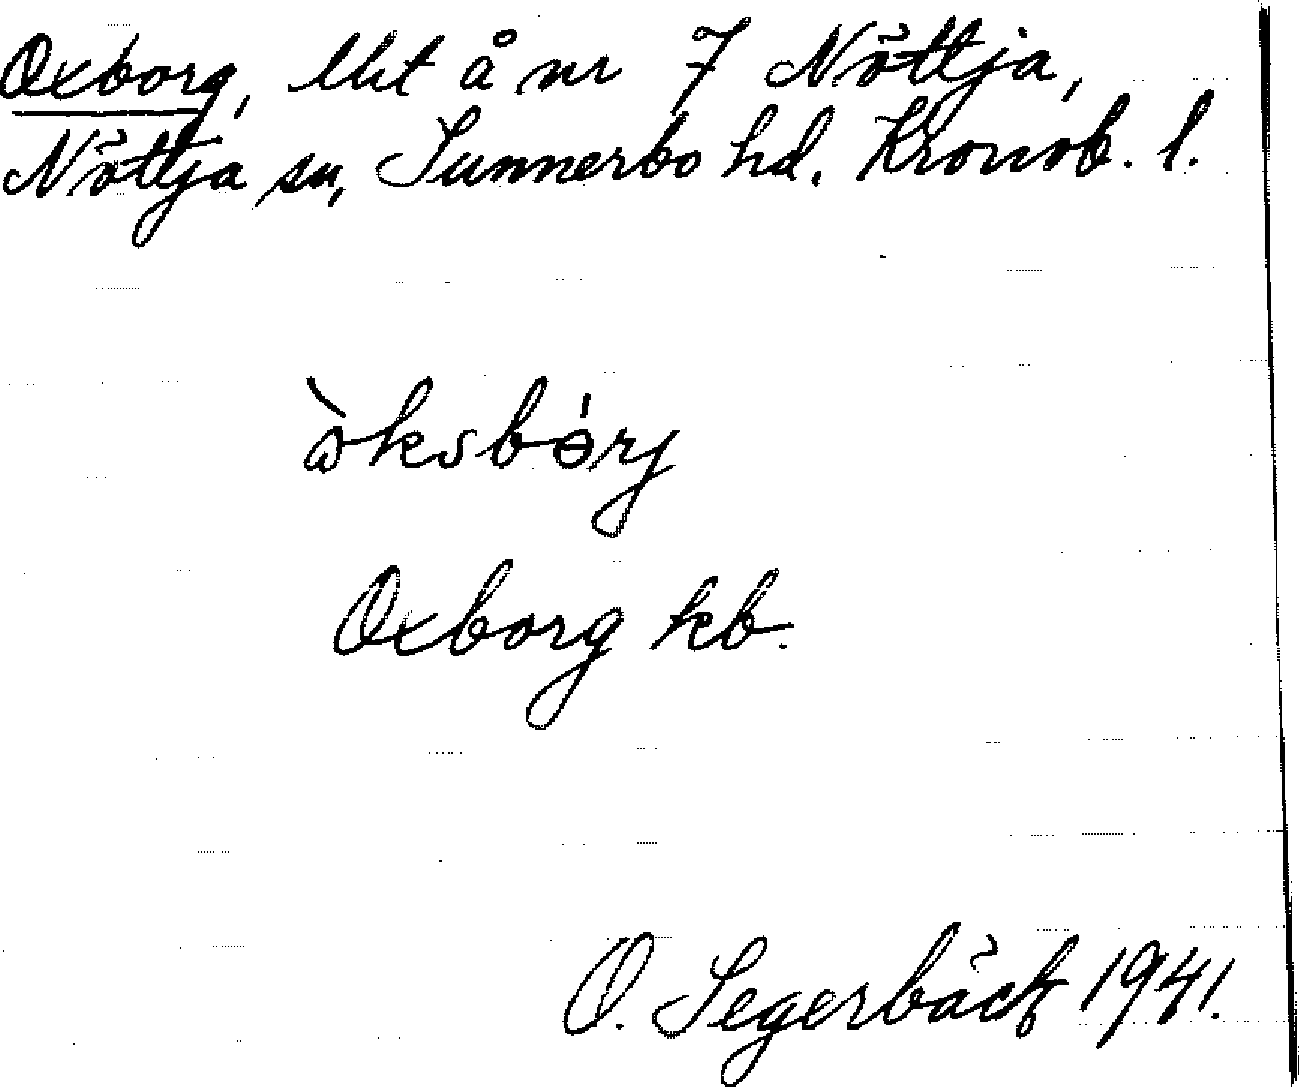 Oxborg, lht å nr 7 Nöttja,
Nöttja sn, Sunnerbo hd. Kronob. l.
òksbɵ́rj
Oxborg kb.
O. Segerbäck 1941.